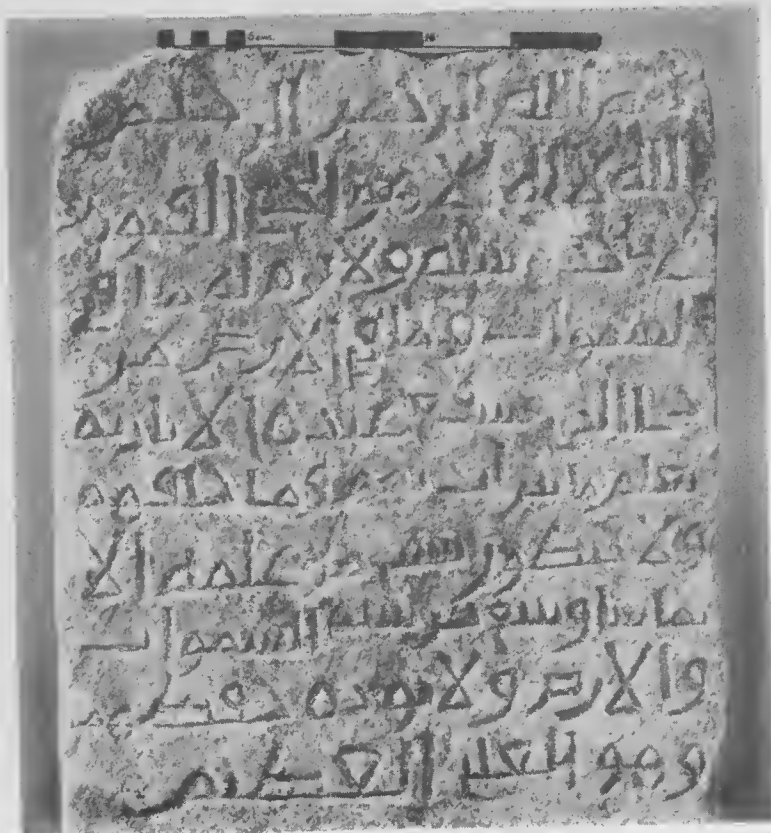 5 cms.
بسم الله الرحمن الرحيم
الله لا اله الا هو الحي القيوم
لا تاخذه سنة ولا نوم له ما في
السموات وما في الارض من
ذا الذي يشفع عنده الا باذنه
يعلم ما بين ايديهم وما خلفهم
ولا يحيطون بشي من علمه الا
بما شا وسع كرسيه السموات
والارض ولا يوده حفظهما
وهو العلي العظيم